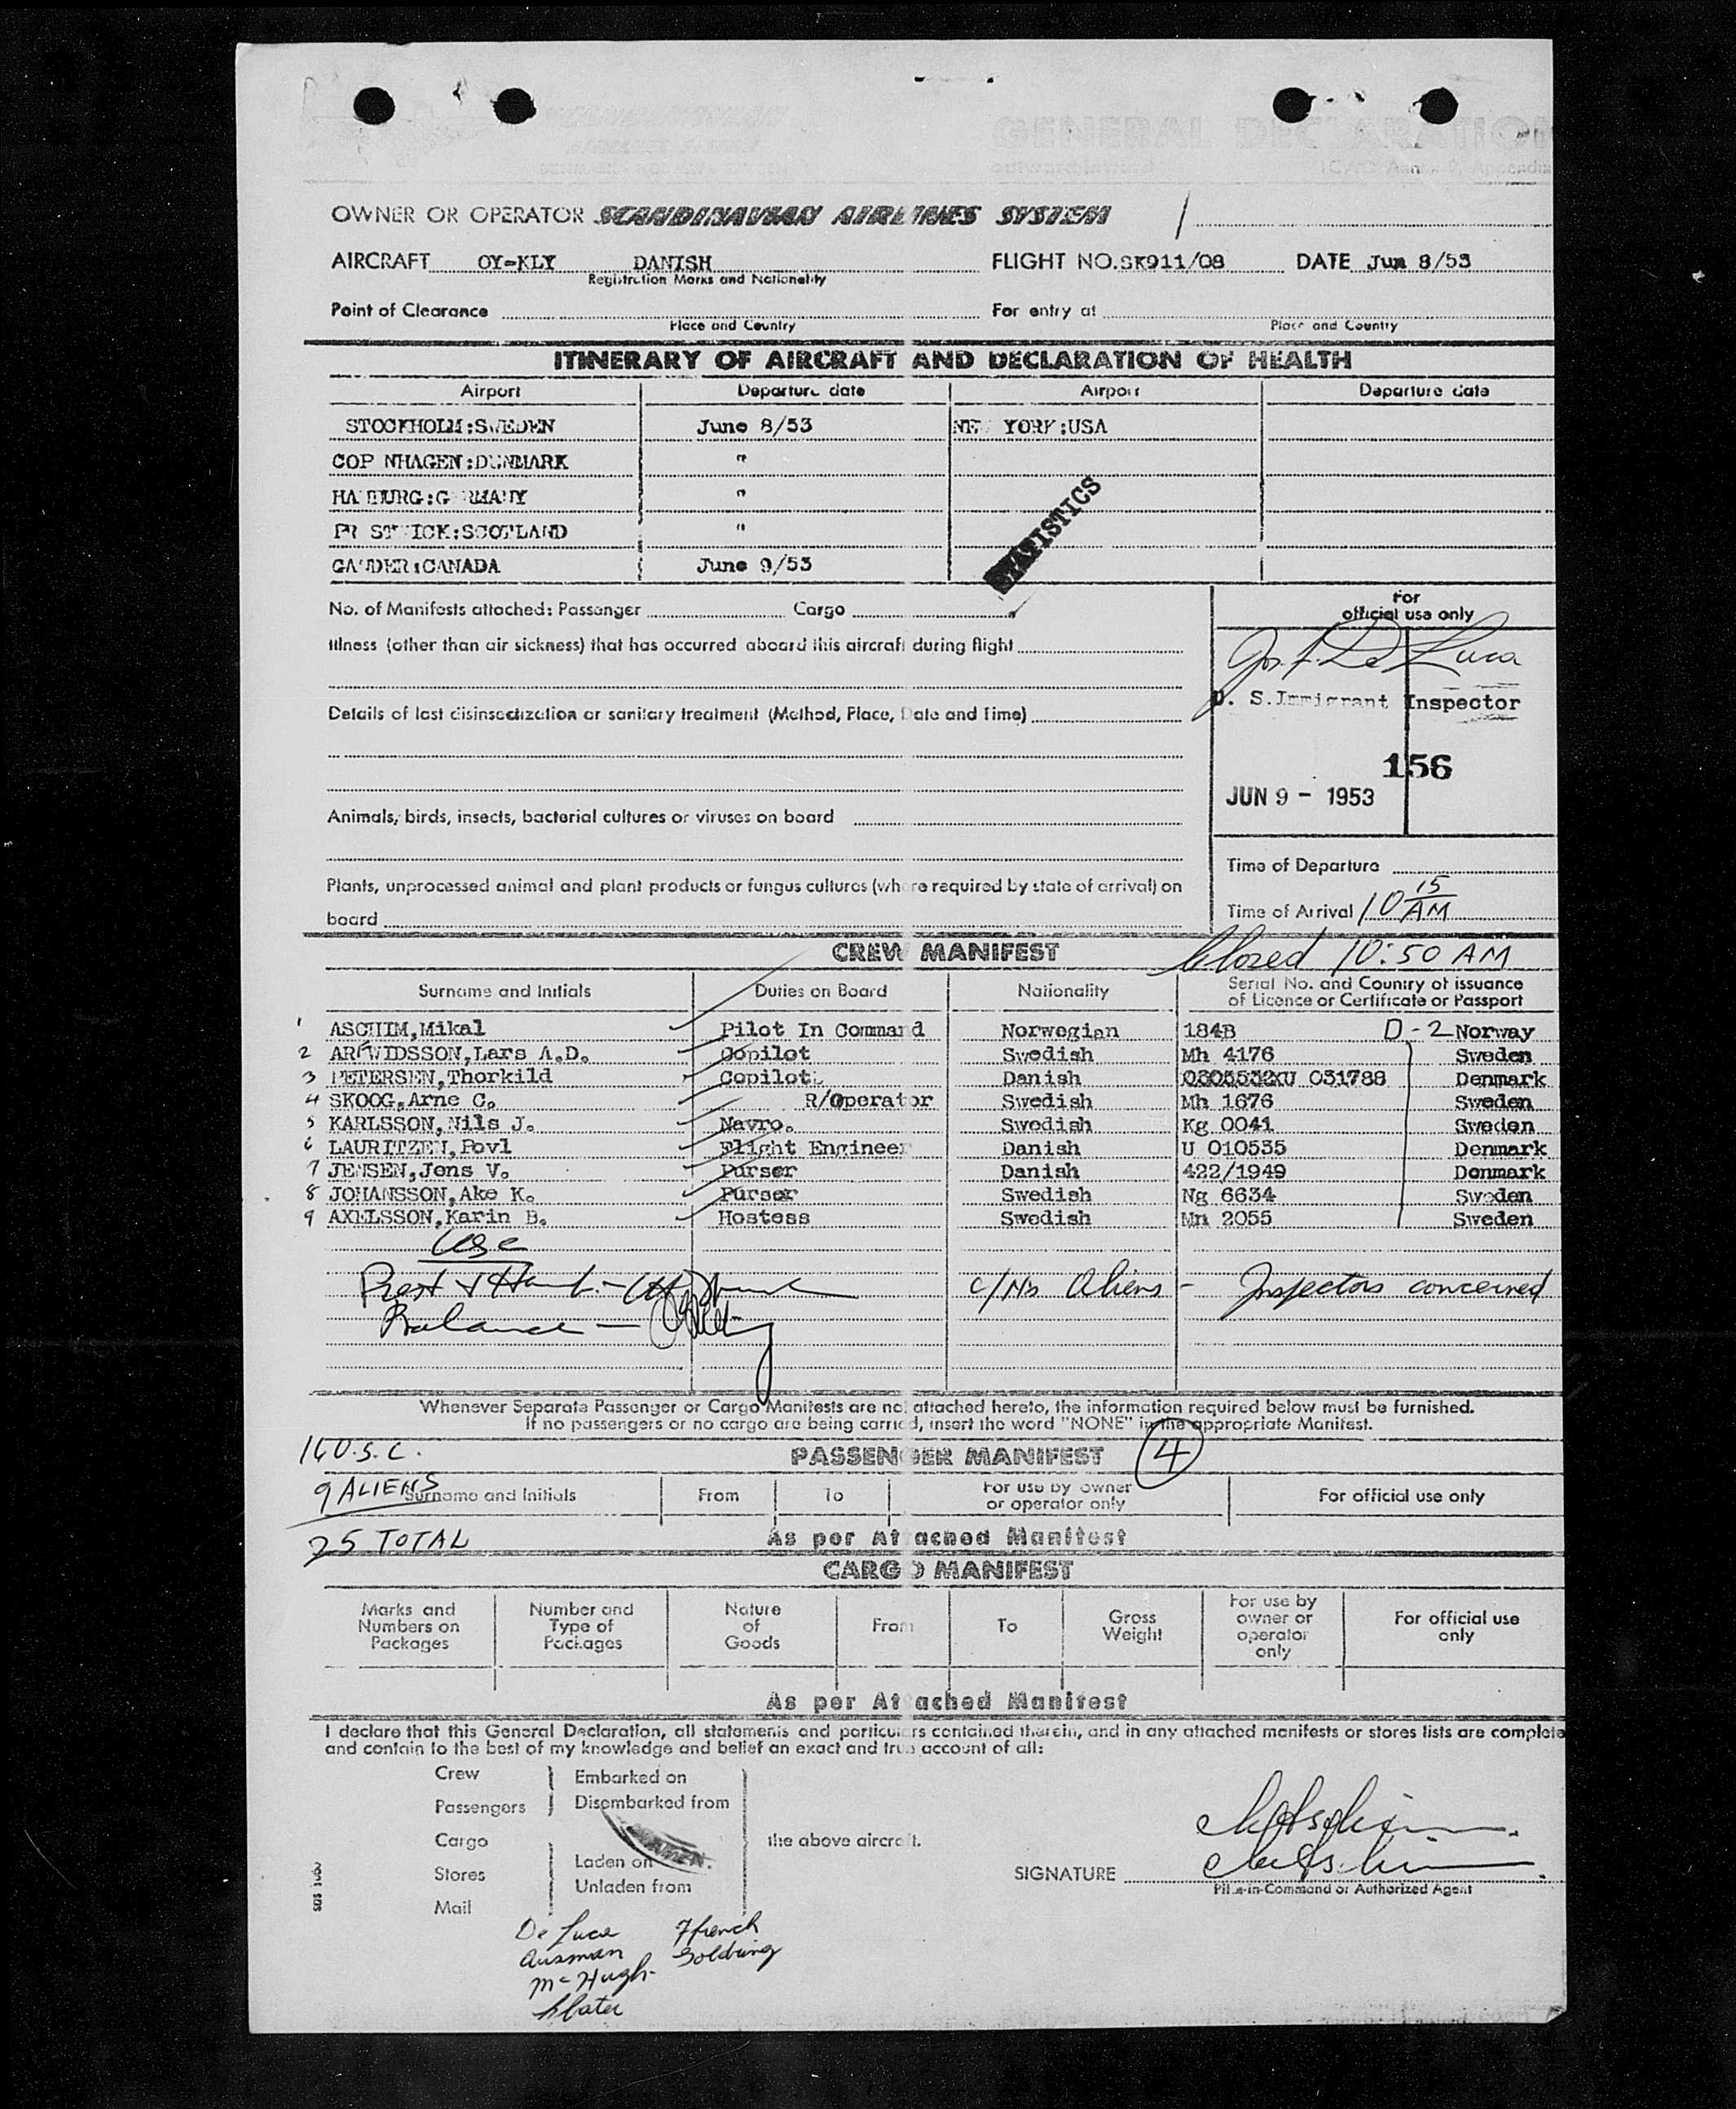 GENERAL DECLARATION
OWNER OR OPERATOR SCANDINAVIAN AIRLINES SYSTEM
AIRCRAFT OY-KLY DANISH FLIGHT NO. SK911/08 DATE Jun 8/53
Registration Marks and Nationality
Point of Clearance For entry at
Place and Country Place and Country
ITINERARY OF AIRCRAFT AND DECLARATION OF HEALTH
Airport Departure date Airport Departure date
STOCKHOLM:SWEDEN June 8/53 NEW YORK:USA
COPENHAGEN:DENMARK "
HAMBURG:GERMANY "
PRESTWICK:SCOTLAND "
GANDER:CANADA June 9/53
STATISTICS
No. of Manifests attached: Passenger Cargo
For
official use only
Illness (other than air sickness) that has occurred aboard this aircraft during flight
Jos. F. De Luca
U. S. Immigrant Inspector
Details of last disinsectization or sanitary treatment (Method, Place, Date and Time)
156
JUN 9 - 1953
Animals, birds, insects, bacterial cultures or viruses on board
Time of Departure
Plants, unprocessed animal and plant products or fungus cultures (where required by state of arrival) on
board
Time of Arrival 10 15 AM
Closed 10:50 AM
CREW MANIFEST
Surname and Initials Duties on Board Nationality Serial No. and Country of issuance
of Licence or Certificate or Passport
1 ASCHIM,Mikal Pilot In Command Norwegian 184B D-2 Norway
2 ARFWIDSSON,Lars A.D. Copilot Swedish Mh 4176 Sweden
3 PETERSEN,Thorkild Copilot Danish U 031788 Denmark
4 SKOOG,Arne C. R/Operator Swedish Mh 1676 Sweden
5 KARLSSON,Nils J. Navro. Swedish Kg 0041 Sweden
6 LAURITZEN,Povl Flight Engineer Danish U 010535 Denmark
7 JENSEN,Jens V. Purser Danish 422/1949 Denmark
8 JOHANSSON,Ake K. Purser Swedish Ng 6634 Sweden
9 AXELSSON,Karin B. Hostess Swedish Mn 2055 Sweden
Balance -
Aliens - Inspectors concerned
Whenever Separate Passenger or Cargo Manifests are not attached hereto, the information required below must be furnished.
If no passengers or no cargo are being carried, insert the word "NONE" in the appropriate Manifest.
16 U.S.C.
PASSENGER MANIFEST 4
9 ALIENS
Surname and Initials From To For use by owner
or operator only For official use only
25 TOTAL
As per Attached Manifest
CARGO MANIFEST
Marks and
Numbers on
Packages Number and
Type of
Packages Nature
of
Goods From To Gross
Weight For use by
owner or
operator
only For official use
only
As per Attached Manifest
I declare that this General Declaration, all statements and particulars contained therein, and in any attached manifests or stores lists are complete
and contain to the best of my knowledge and belief an exact and true account of all:
Crew Embarked on
Passengers Disembarked from
Cargo the above aircraft.
Laden on
Stores
Unladen from
Mail
SIGNATURE
Pilot-in-Command or Authorized Agent
De Luca Ffrench
Ausman Goldring
McHugh
Slater